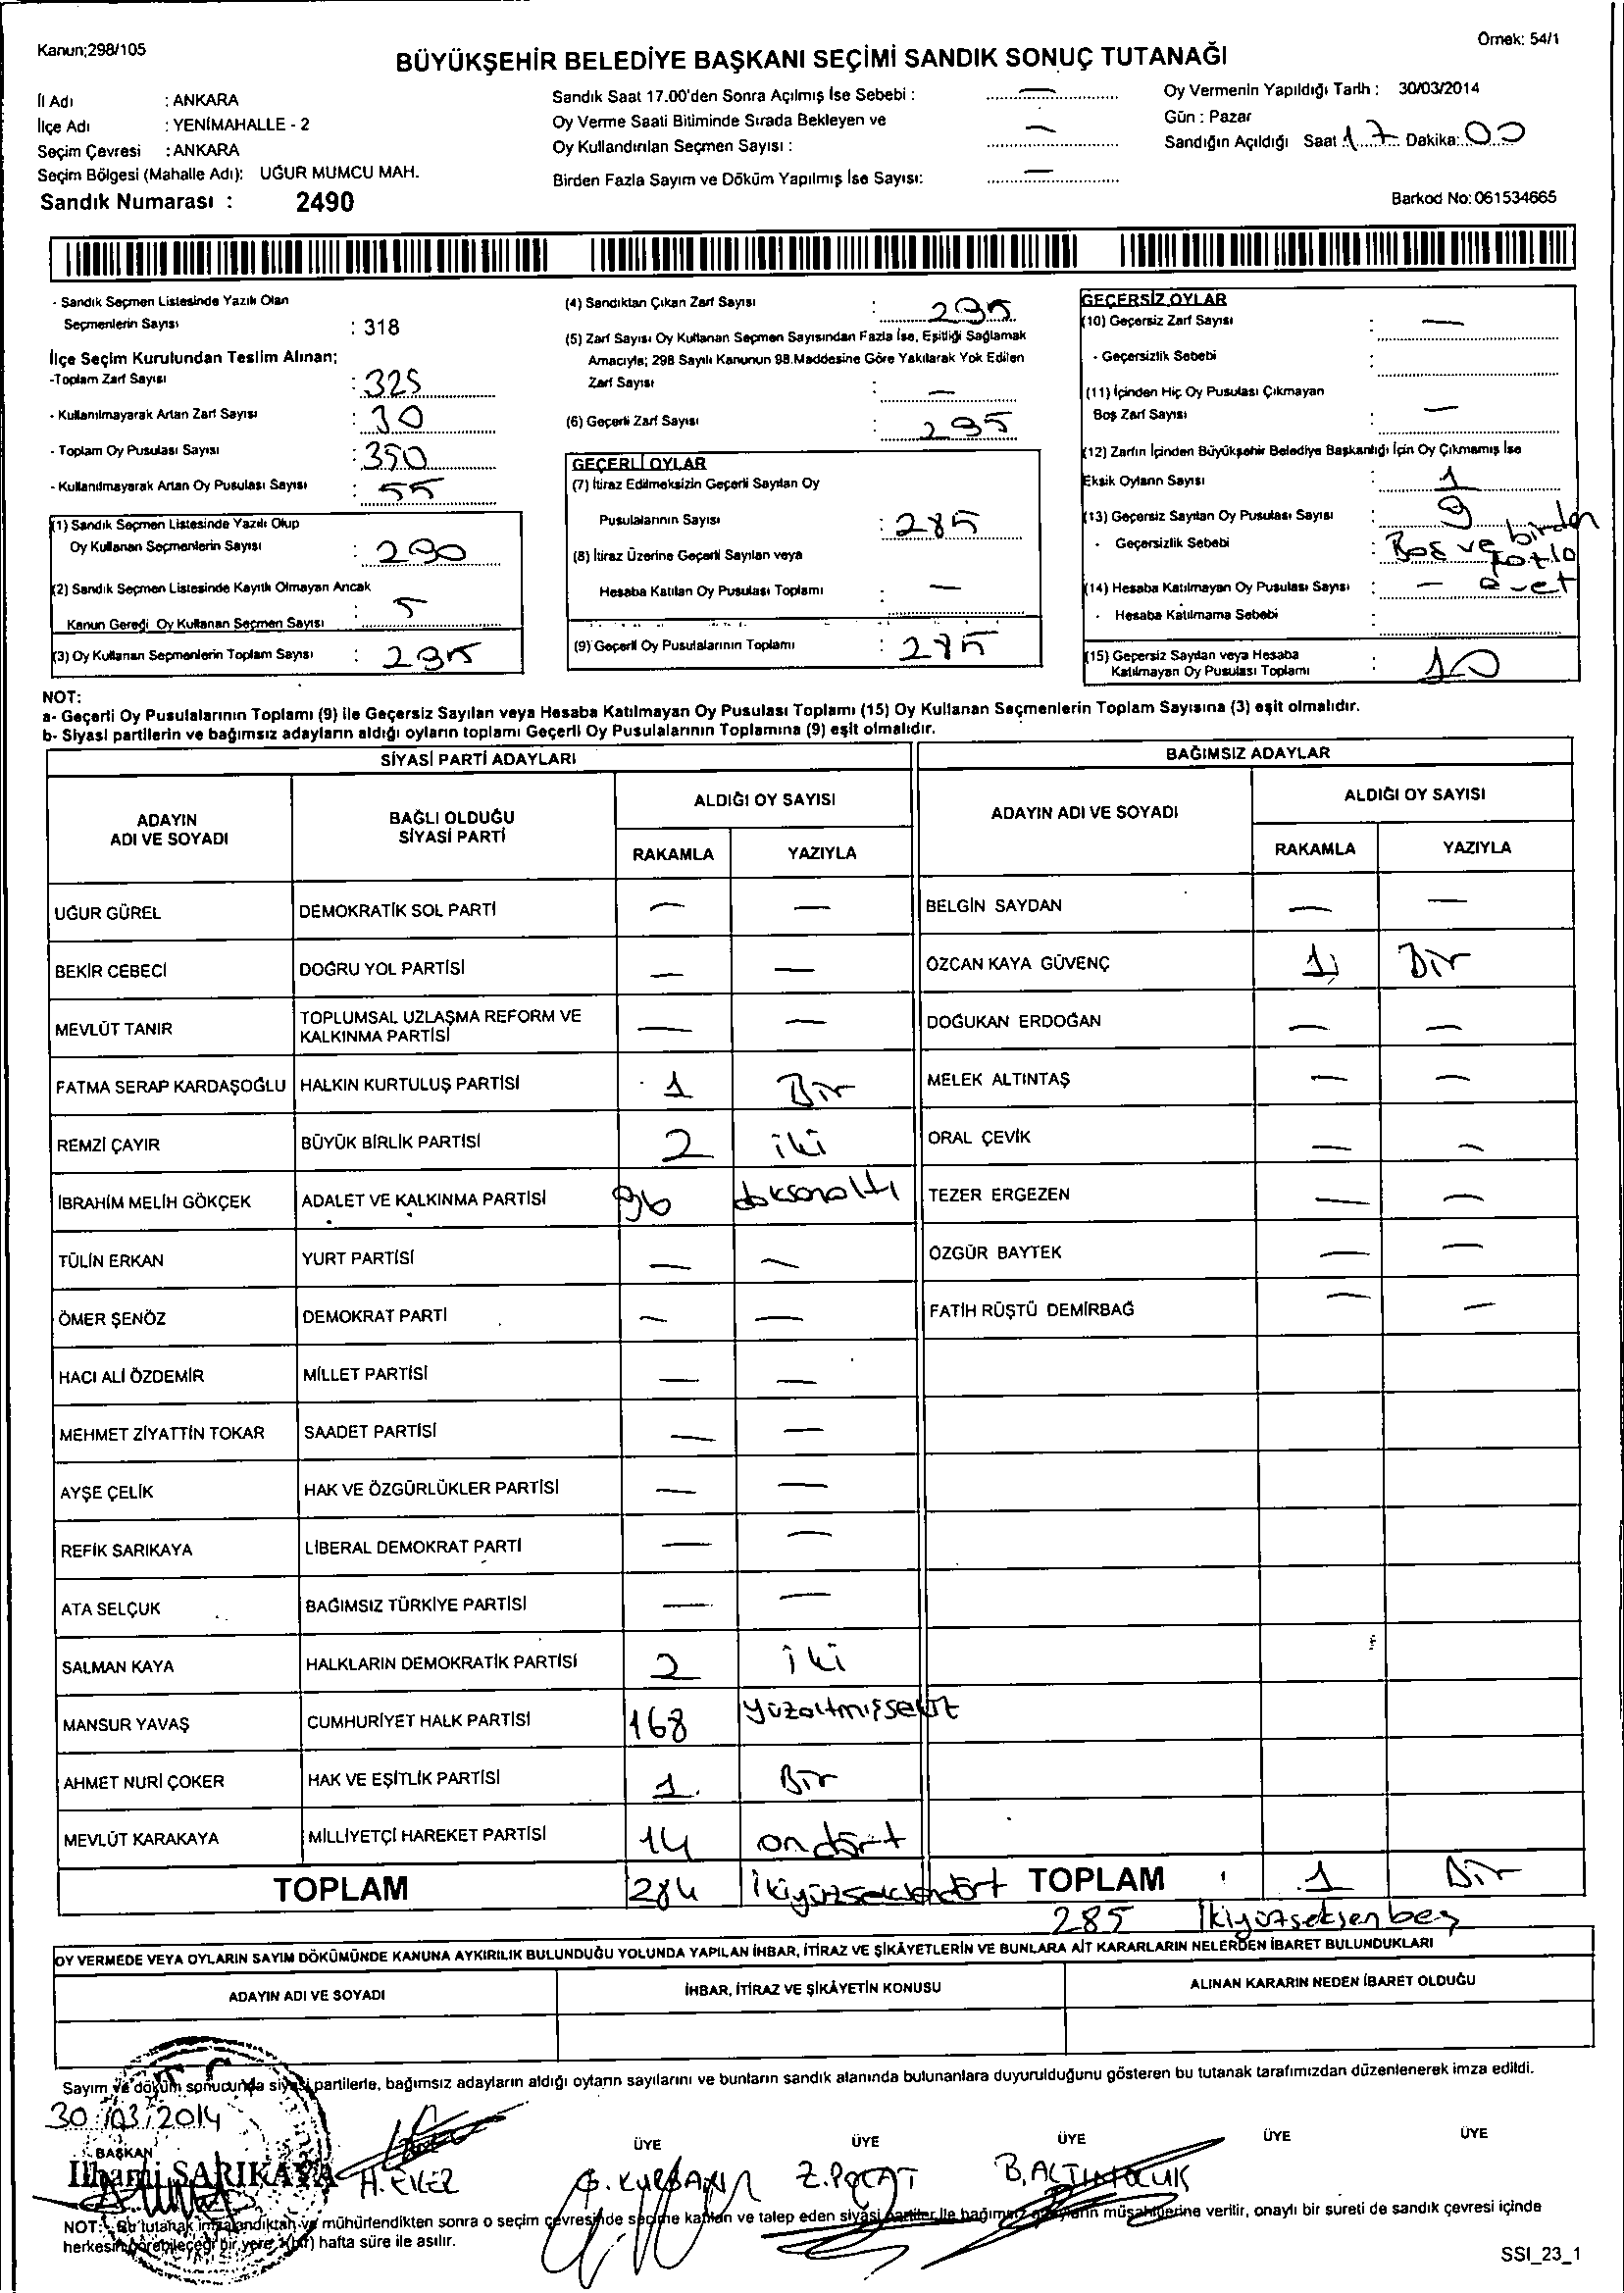 Kanun;298/105
Örnek: 54/1
BÜYÜKŞEHİR BELEDİYE BAŞKANI SEÇİMİ SANDIK SONUÇ TUTANAĞI
İl Adı : ANKARA
İlçe Adı : YENİMAHALLE - 2
Seçim Çevresi : ANKARA
Seçim Bölgesi (Mahalle Adı): UĞUR MUMCU MAH.
Sandık Numarası : 2490
Sandık Saat 17.00'den Sonra Açılmış İse Sebebi : —
Oy Verme Saati Bitiminde Sırada Bekleyen ve
Oy Kullandırılan Seçmen Sayısı : —
Birden Fazla Sayım ve Döküm Yapılmış İse Sayısı: —
Oy Vermenin Yapıldığı Tarih : 30/03/2014
Gün : Pazar
Sandığın Açıldığı Saat 17 Dakika: 00
Barkod No: 061534665
- Sandık Seçmen Listesinde Yazılı Olan
Seçmenlerin Sayısı : 318
İlçe Seçim Kurulundan Teslim Alınan;
-Toplam Zarf Sayısı : 325
- Kullanılmayarak Artan Zarf Sayısı : 30
- Toplam Oy Pusulası Sayısı : 350
- Kullanılmayarak Artan Oy Pusulası Sayısı : 55
(1) Sandık Seçmen Listesinde Yazılı Olup
Oy Kullanan Seçmenlerin Sayısı : 290
(2) Sandık Seçmen Listesinde Kayıtlı Olmayan Ancak
Kanun Gereği Oy Kullanan Seçmen Sayısı : 5
(3) Oy Kullanan Seçmenlerin Toplam Sayısı : 295
(4) Sandıktan Çıkan Zarf Sayısı : 295
(5) Zarf Sayısı Oy Kullanan Seçmen Sayısından Fazla İse, Eşitliği Sağlamak
Amacıyla; 298 Sayılı Kanunun 98.Maddesine Göre Yakılarak Yok Edilen
Zarf Sayısı : —
(6) Geçerli Zarf Sayısı : 295
GEÇERLİ OYLAR
(7) İtiraz Edilmeksizin Geçerli Sayılan Oy
Pusulalarının Sayısı : 285
(8) İtiraz Üzerine Geçerli Sayılan veya
Hesaba Katılan Oy Pusulası Toplamı : —
(9) Geçerli Oy Pusulalarının Toplamı : 285
GEÇERSİZ OYLAR
(10) Geçersiz Zarf Sayısı : —
- Geçersizlik Sebebi :
(11) İçinden Hiç Oy Pusulası Çıkmayan
Boş Zarf Sayısı : —
(12) Zarfın İçinden Büyükşehir Belediye Başkanlığı İçin Oy Çıkmamış İse
Eksik Oyların Sayısı : 1
(13) Geçersiz Sayılan Oy Pusulası Sayısı : 9
- Geçersizlik Sebebi : Boş ve birden fazla evet
(14) Hesaba Katılmayan Oy Pusulası Sayısı : —
- Hesaba Katılmama Sebebi :
(15) Geçersiz Sayılan veya Hesaba
Katılmayan Oy Pusulası Toplamı : 10
NOT:
a- Geçerli Oy Pusulalarının Toplamı (9) ile Geçersiz Sayılan veya Hesaba Katılmayan Oy Pusulası Toplamı (15) Oy Kullanan Seçmenlerin Toplam Sayısına (3) eşit olmalıdır.
b- Siyasi partilerin ve bağımsız adayların aldığı oyların toplamı Geçerli Oy Pusulalarının Toplamına (9) eşit olmalıdır.
SİYASİ PARTİ ADAYLARI
BAĞIMSIZ ADAYLAR
ADAYIN ADI VE SOYADI
BAĞLI OLDUĞU SİYASİ PARTİ
ALDIĞI OY SAYISI
RAKAMLA YAZIYLA
ADAYIN ADI VE SOYADI
ALDIĞI OY SAYISI
RAKAMLA YAZIYLA
UĞUR GÜREL DEMOKRATİK SOL PARTİ — — BELGİN SAYDAN — —
BEKİR CEBECİ DOĞRU YOL PARTİSİ — — ÖZCAN KAYA GÜVENÇ 1 Bir
MEVLÜT TANIR TOPLUMSAL UZLAŞMA REFORM VE KALKINMA PARTİSİ — — DOĞUKAN ERDOĞAN — —
FATMA SERAP KARDAŞOĞLU HALKIN KURTULUŞ PARTİSİ 1 Bir MELEK ALTINTAŞ — —
REMZİ ÇAYIR BÜYÜK BİRLİK PARTİSİ 2 iki ORAL ÇEVİK — —
İBRAHİM MELİH GÖKÇEK ADALET VE KALKINMA PARTİSİ 96 doksanaltı TEZER ERGEZEN — —
TÜLİN ERKAN YURT PARTİSİ — — ÖZGÜR BAYTEK — —
ÖMER ŞENÖZ DEMOKRAT PARTİ — — FATİH RÜŞTÜ DEMİRBAĞ — —
HACI ALİ ÖZDEMİR MİLLET PARTİSİ — —
MEHMET ZİYATTİN TOKAR SAADET PARTİSİ — —
AYŞE ÇELİK HAK VE ÖZGÜRLÜKLER PARTİSİ — —
REFİK SARIKAYA LİBERAL DEMOKRAT PARTİ — —
ATA SELÇUK BAĞIMSIZ TÜRKİYE PARTİSİ — —
SALMAN KAYA HALKLARIN DEMOKRATİK PARTİSİ 2 iki
MANSUR YAVAŞ CUMHURİYET HALK PARTİSİ 168 yüzaltmışsekiz
AHMET NURİ ÇOKER HAK VE EŞİTLİK PARTİSİ 1 Bir
MEVLÜT KARAKAYA MİLLİYETÇİ HAREKET PARTİSİ 14 ondört
TOPLAM 284 İkiyüzseksendört TOPLAM 1 Bir
285 İkiyüzseksenbeş
OY VERMEDE VEYA OYLARIN SAYIM DÖKÜMÜNDE KANUNA AYKIRILIK BULUNDUĞU YOLUNDA YAPILAN İHBAR, İTİRAZ VE ŞİKÂYETLERİN VE BUNLARA AİT KARARLARIN NELERDEN İBARET BULUNDUKLARI
ADAYIN ADI VE SOYADI İHBAR, İTİRAZ VE ŞİKÂYETİN KONUSU ALINAN KARARIN NEDEN İBARET OLDUĞU
Sayım ve döküm sonucunda siyasi partilerle, bağımsız adayların aldığı oyların sayılarını ve bunların sandık alanında bulunanlara duyurulduğunu gösteren bu tutanak tarafımızdan düzenlenerek imza edildi.
30/03/2014
BAŞKAN ÜYE ÜYE ÜYE ÜYE ÜYE
İlhami SARIKAYA Z.POLAT
NOT: Bu tutanak imzalandıktan ve mühürlendikten sonra o seçim çevresinde seçime katılan ve talep eden siyasi partiler ile bağımsız adayların müşahitlerine verilir, onaylı bir sureti de sandık çevresi içinde
herkesin görebileceği bir yere 1(bir) hafta süre ile asılır.
SSI_23_1